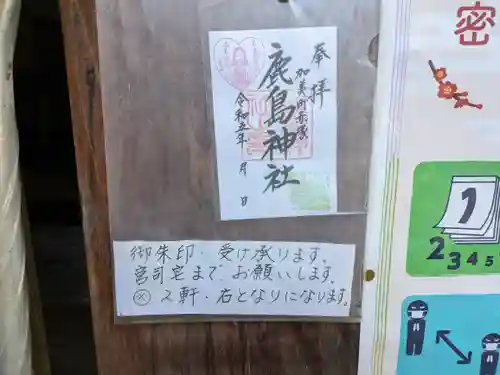 奉拝
加美町赤塚
鹿島神社
令和五年 月 日
御朱印・受け承ります。
宮司宅まで、お願いします。
※ 2軒・右となりになります。
密
1
2345